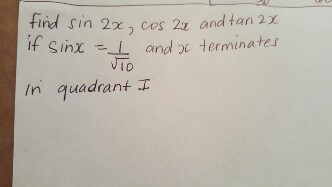 find sin 2x, cos 2x and tan 2x
if sinx = 1/√10 and x terminates
in quadrant I